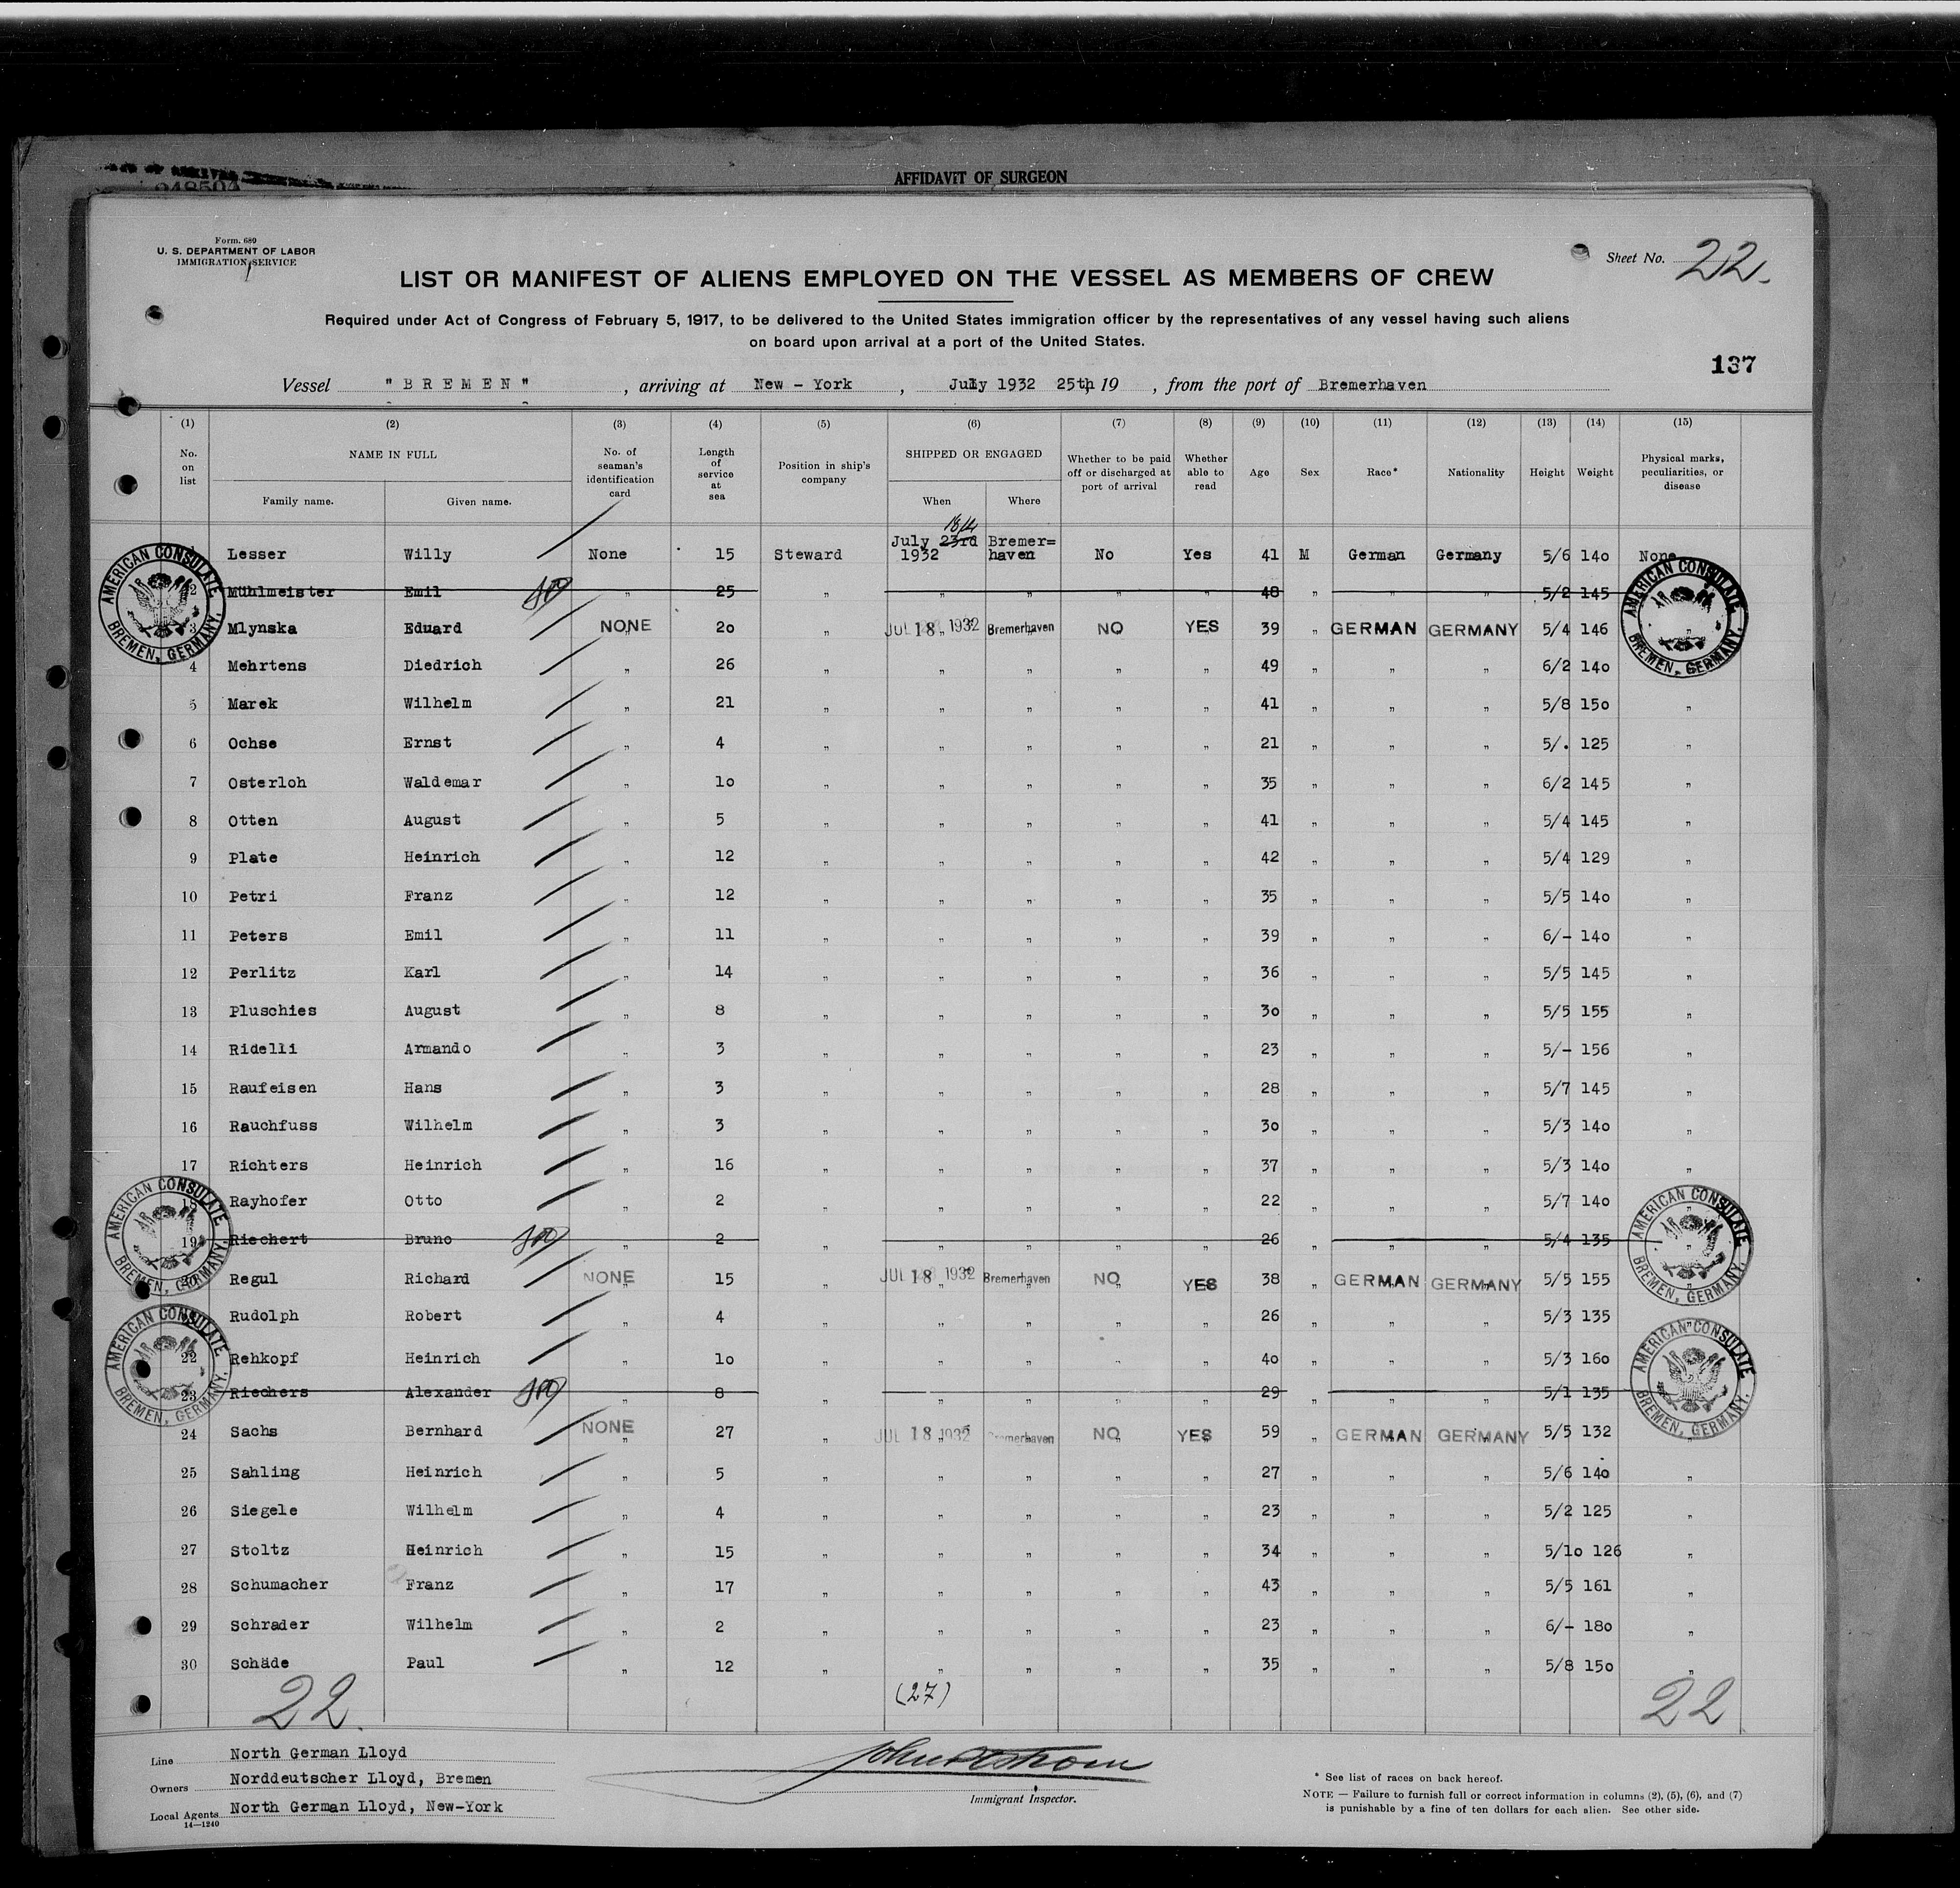 AFFIDAVIT OF SURGEON
Form. 680
U. S. DEPARTMENT OF LABOR
IMMIGRATION SERVICE
Sheet No. 22.
LIST OR MANIFEST OF ALIENS EMPLOYED ON THE VESSEL AS MEMBERS OF CREW
Required under Act of Congress of February 5, 1917, to be delivered to the United States immigration officer by the representatives of any vessel having such aliens
on board upon arrival at a port of the United States.
137
Vessel "BREMEN" , arriving at New - York , July 1932 25th, 19 , from the port of Bremerhaven
(1) (2) (3) (4) (5) (6) (7) (8) (9) (10) (11) (12) (13) (14) (15)
No. on list NAME IN FULL Family name. Given name. No. of seaman's identification card Length of service at sea Position in ship's company SHIPPED OR ENGAGED When Where Whether to be paid off or discharged at port of arrival Whether able to read Age Sex Race* Nationality Height Weight Physical marks, peculiarities, or disease
Lesser Willy None 15 Steward July 23rd 18th 1932 Bremer=haven No Yes 41 M German Germany 5/6 140 None
2 Mühlmeister Emil " 25 " " " " " 48 " " " 5/2 145
3 Mlynska Eduard NONE 20 " JUL 18 1932 Bremerhaven NO YES 39 " GERMAN GERMANY 5/4 146 "
4 Mehrtens Diedrich " 26 " " " " " 49 " " " 6/2 140
5 Marek Wilhelm " 21 " " " " " 41 " " " 5/8 150 "
6 Ochse Ernst " 4 " " " " " 21 " " " 5/. 125 "
7 Osterloh Waldemar " 10 " " " " " 35 " " " 6/2 145 "
8 Otten August " 5 " " " " " 41 " " " 5/4 145 "
9 Plate Heinrich " 12 " " " " " 42 " " " 5/4 129 "
10 Petri Franz " 12 " " " " " 35 " " " 5/5 140 "
11 Peters Emil " 11 " " " " " 39 " " " 6/- 140 "
12 Perlitz Karl " 14 " " " " " 36 " " " 5/5 145 "
13 Pluschies August " 8 " " " " " 30 " " " 5/5 155 "
14 Ridelli Armando " 3 " " " " " 23 " " " 5/- 156 "
15 Raufeisen Hans " 3 " " " " " 28 " " " 5/7 145 "
16 Rauchfuss Wilhelm " 3 " " " " " 30 " " " 5/3 140 "
17 Richters Heinrich " 16 " " " " " 37 " " " 5/3 140 "
18 Rayhofer Otto " 2 " " " " " 22 " " " 5/7 140 "
19 Riechert Bruno " 2 " " " " " 26 " " " 5/4 135 "
20 Regul Richard NONE 15 " JUL 18 1932 Bremerhaven NO YES 38 " GERMAN GERMANY 5/5 155
Rudolph Robert " 4 " " " " " 26 " " " 5/3 135 "
22 Rehkopf Heinrich " 10 " " " " " 40 " " " 5/3 160
23 Riechers Alexander " 8 " " " " " 29 " " " 5/1 135
24 Sachs Bernhard NONE 27 " JUL 18 1932 Bremerhaven NO YES 59 " GERMAN GERMANY 5/5 132 "
25 Sahling Heinrich " 5 " " " " " 27 " " " 5/6 140 "
26 Siegele Wilhelm " 4 " " " " " 23 " " " 5/2 125 "
27 Stoltz Heinrich " 15 " " " " " 34 " " " 5/10 126 "
28 Schumacher Franz " 17 " " " " " 43 " " " 5/5 161 "
29 Schrader Wilhelm " 2 " " " " " 23 " " " 6/- 180 "
30 Schäde Paul " 12 " " " " " 35 " " " 5/8 150 "
AMERICAN CONSULATE BREMEN, GERMANY.
AMERICAN CONSULATE BREMEN, GERMANY.
AMERICAN CONSULATE BREMEN, GERMANY.
AMERICAN CONSULATE BREMEN, GERMANY.
AMERICAN CONSULATE BREMEN, GERMANY.
AMERICAN CONSULATE BREMEN, GERMANY.
22. (27) 22
Line North German Lloyd
Owners Norddeutscher Lloyd, Bremen
Local Agents North German Lloyd, New-York
14—1240
Immigrant Inspector.
* See list of races on back hereof.
NOTE — Failure to furnish full or correct information in columns (2), (5), (6), and (7)
is punishable by a fine of ten dollars for each alien. See other side.